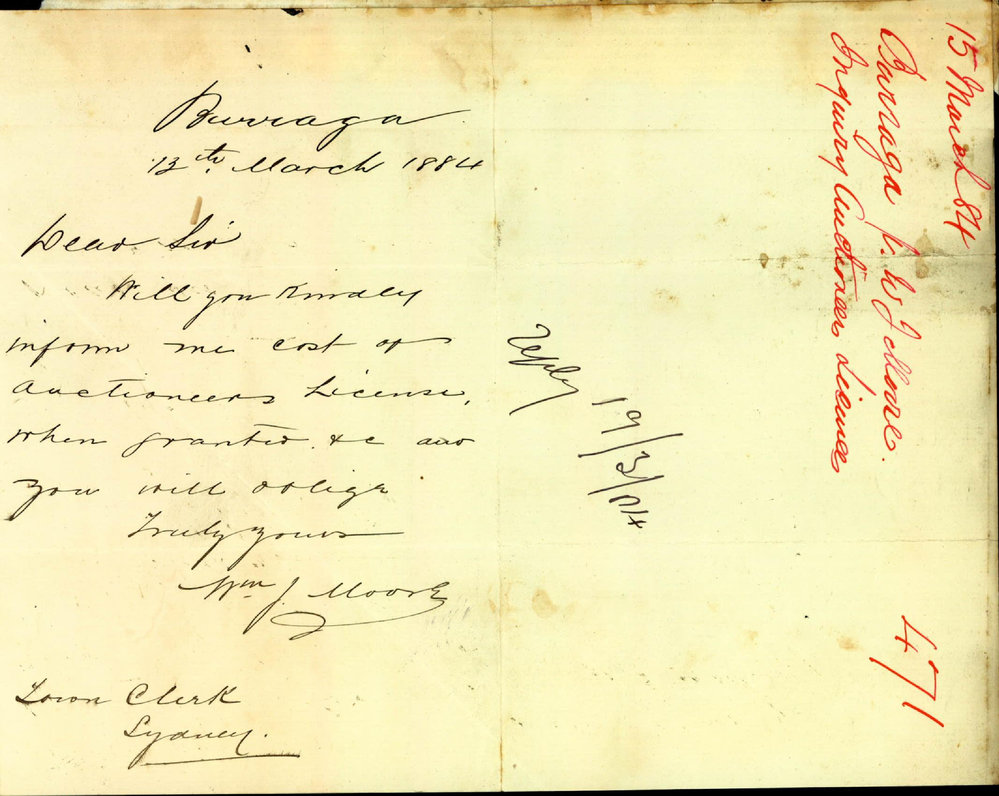 Burraga
13th. March 1884
Dear Sir
Will you Kindly
inform me cost of
Auctioneers License,
when granted. &c and
you will oblige
Truly yours
Wm J. Moore
Town Clerk
Sydney.
reply 19/3/84
15 March 84
Burraga W J Moore.
Inquiry Auctioneers License
471